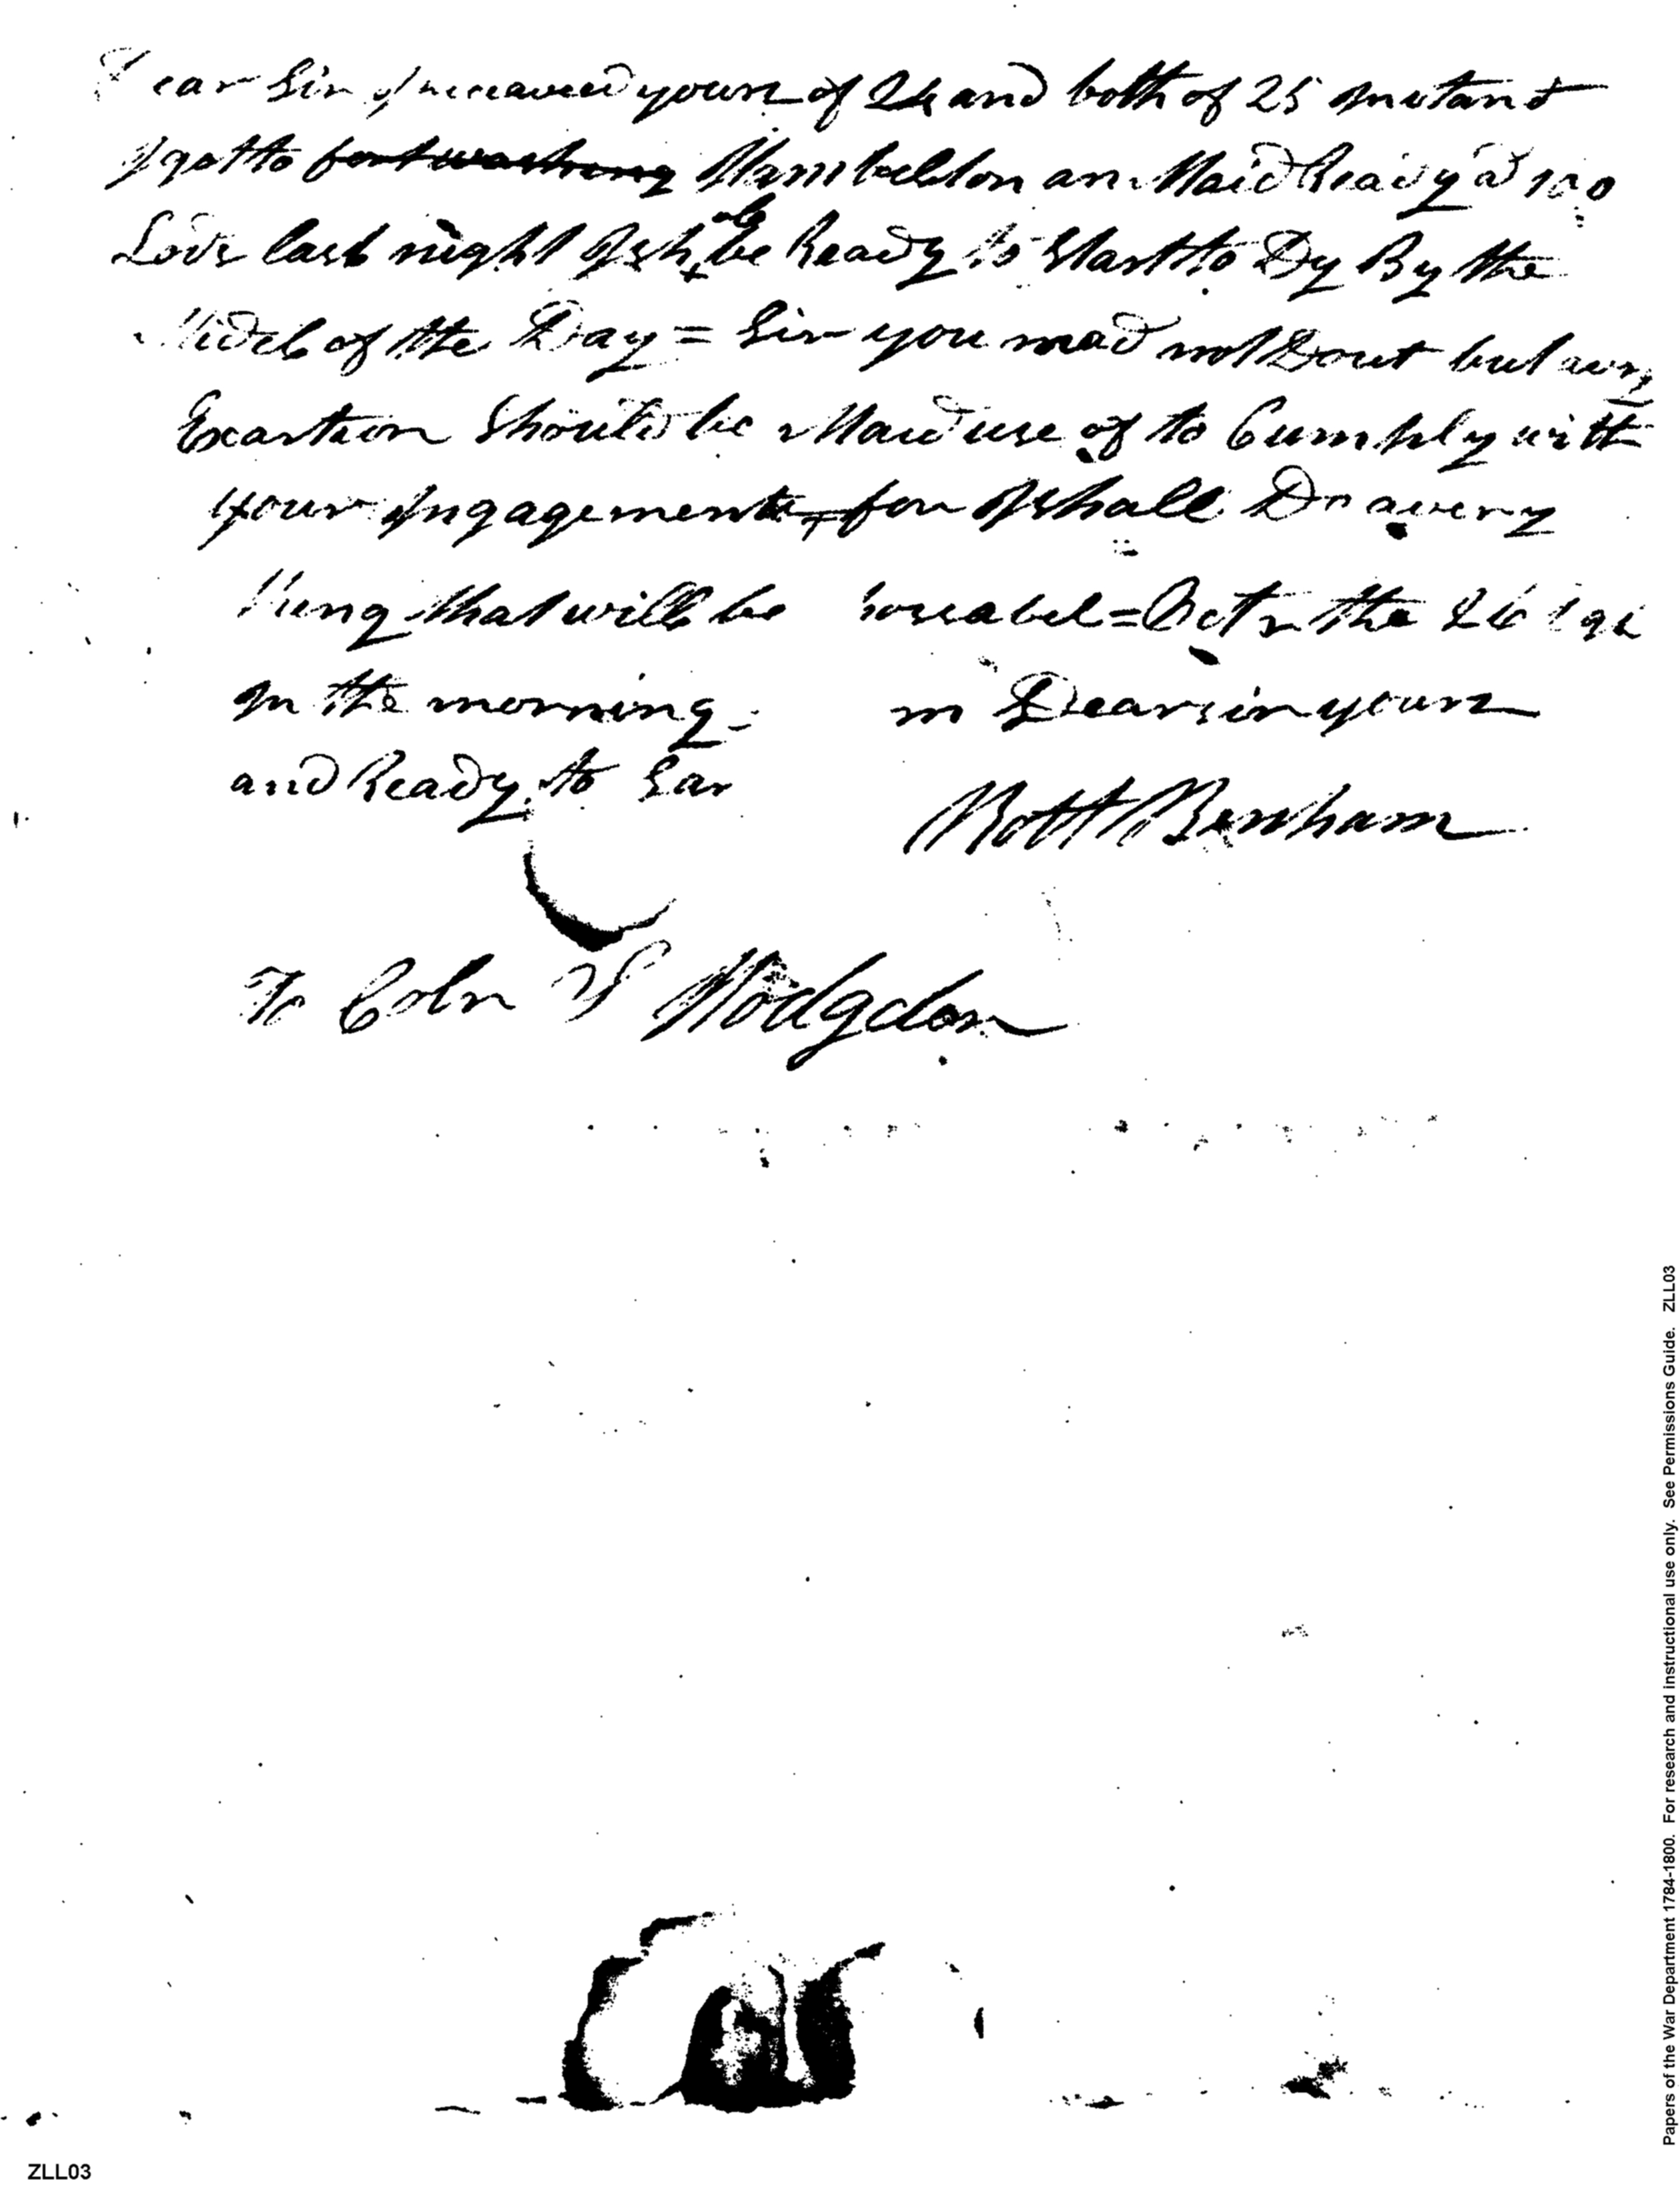 Dear Sir I receaved yours of 24 and both of 25 Instant
I got to fort washing Hambelton an Maid Ready a 100
Lods last night I shall be Ready to Start to Dy By the
Midel of the Day = Sir you mad not Dout but avry
Exartion Should be Maid use of to Cumply with
your Ingagements for I shall Do avery
thing that will be = Octr the 26
In the morning Dear Sir yours
and Ready to Sar
Robt Benham
To Coln S Hodgdon
Papers of the War Department 1784-1800. For research and instructional use only. See Permissions Guide. ZLL03
ZLL03